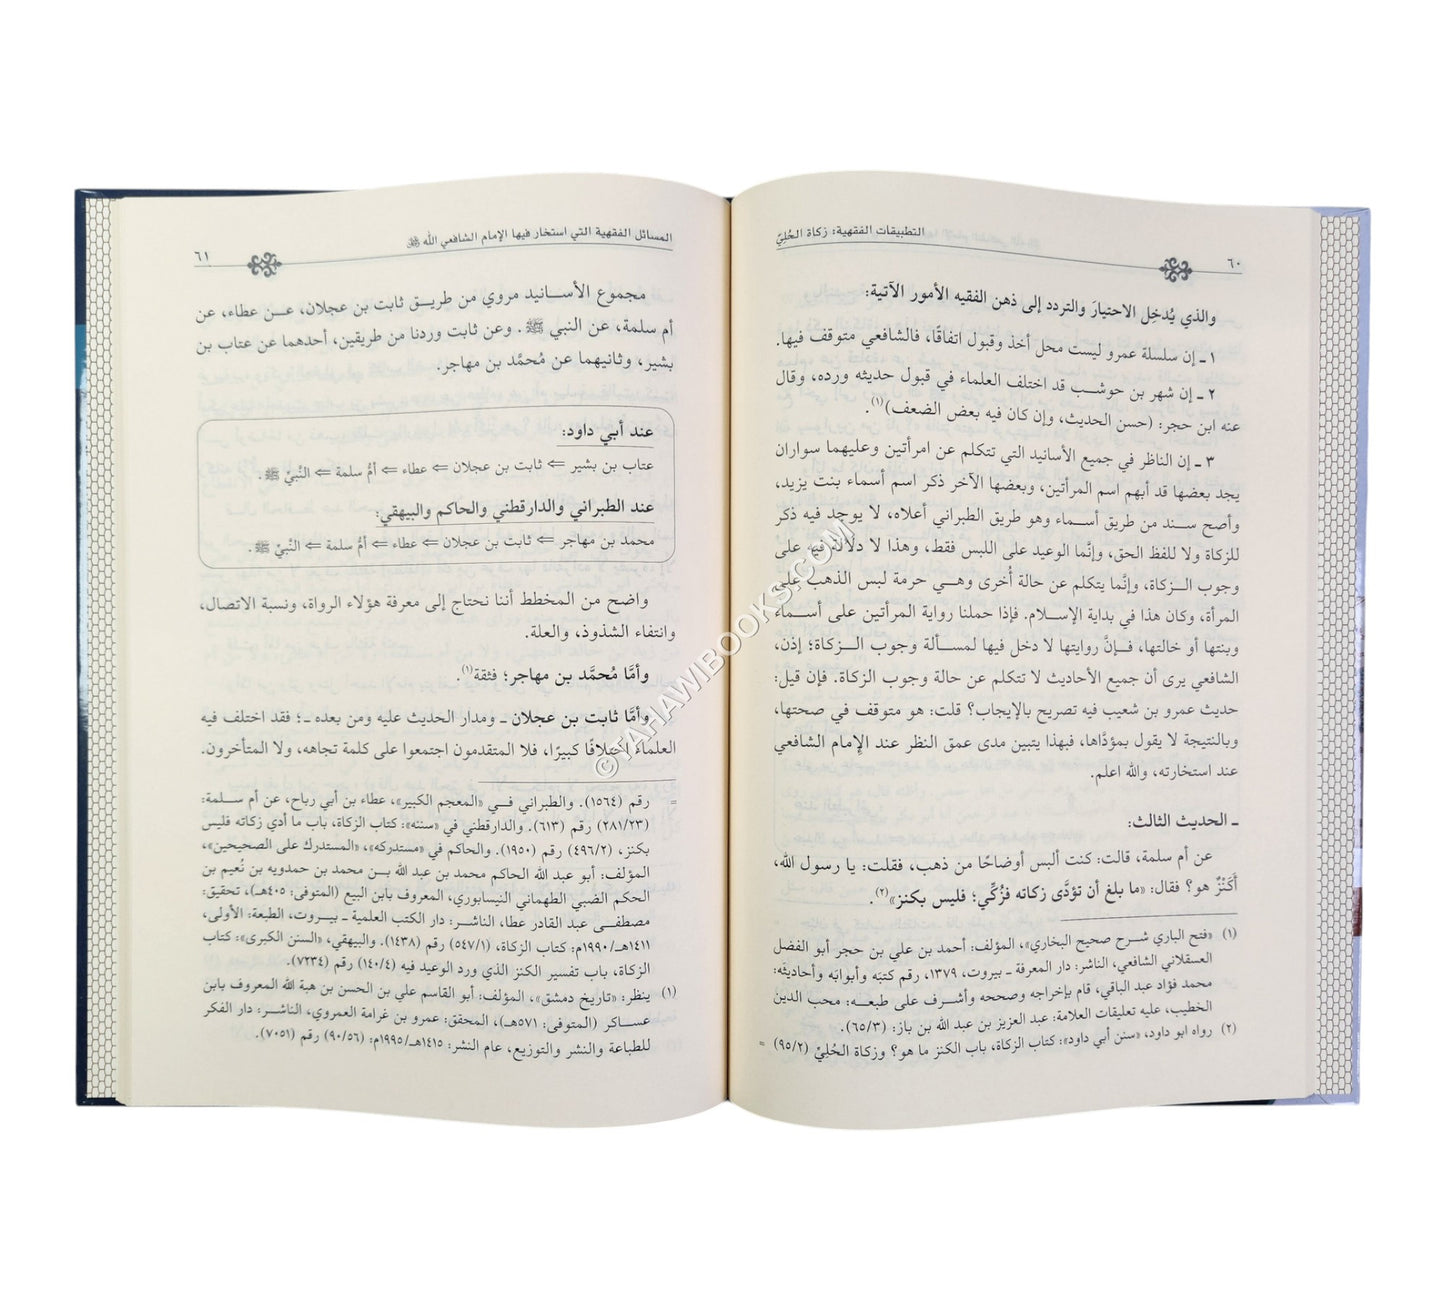 التطبيقات الفقهية: زكاة الحُلِيّ
٦٠
والذي يُدخِل الاحتيارَ والتردد إلى ذهن الفقيه الأمور الآتية:
١ ـ إن سلسلة عمرو ليست محل أخذ وقبول اتفاقًا، فالشافعي متوقف فيها.
٢ ـ إن شهر بن حوشب قد اختلف العلماء في قبول حديثه ورده، وقال
عنه ابن حجر: (حسن الحديث، وإن كان فيه بعض الضعف)(١).
٣ ـ إن الناظر في جميع الأسانيد التي تتكلم عن امرأتين وعليهما سواران
يجد بعضها قد أبهم اسم المرأتين، وبعضها الآخر ذكر اسم أسماء بنت يزيد،
وأصح سند من طريق أسماء وهو طريق الطبراني أعلاه، لا يوجد فيه ذكر
للزكاة ولا للفظ الحق، وإنَّما الوعيد على اللبس فقط، وهذا لا دلالة فيه على
وجوب الزكاة، وإنَّما يتكلم عن حالة أُخرى وهي حرمة لبس الذهب على
المرأة، وكان هذا في بداية الإسلام. فإذا حملنا رواية المرأتين على أسماء
وبنتها أو خالتها، فإنَّ روايتها لا دخل فيها لمسألة وجوب الزكاة؛ إذن،
الشافعي يرى أن جميع الأحاديث لا تتكلم عن حالة وجوب الزكاة. فإن قيل:
حديث عمرو بن شعيب فيه تصريح بالإيجاب؟ قلت: هو متوقف في صحتها،
وبالنتيجة لا يقول بمؤدَّاها، فبهذا يتبين مدى عمق النظر عند الإمام الشافعي
عند استخارته، والله اعلم.
ـ الحديث الثالث:
عن أم سلمة، قالت: كنت ألبس أوضاحًا من ذهب، فقلت: يا رسول الله،
أَكَنْزٌ هو؟ فقال: «ما بلغ أن تؤدَّى زكاته فزُكِّي؛ فليس بكنز»(٢).
(١) «فتح الباري شرح صحيح البخاري»، المؤلف: أحمد بن علي بن حجر أبو الفضل
العسقلاني الشافعي، الناشر: دار المعرفة ـ بيروت، ١٣٧٩، رقم كتبه وأبوابه وأحاديثه:
محمد فؤاد عبد الباقي، قام بإخراجه وصححه وأشرف على طبعه: محب الدين
الخطيب، عليه تعليقات العلامة: عبد العزيز بن عبد الله بن باز: (٦٥/٣).
(٢) رواه ابو داود، «سنن أبي داود»: كتاب الزكاة، باب الكنز ما هو؟ وزكاة الحُلِيّ (٩٥/٢) =
المسائل الفقهية التي استخار فيها الإمام الشافعي الله ﷻ
٦١
مجموع الأسانيد مروي من طريق ثابت بن عجلان، عن عطاء، عن
أم سلمة، عن النبي ﷺ. وعن ثابت وردنا من طريقين، أحدهما عن عتاب بن
بشير، وثانيهما عن مُحمَّد بن مهاجر.
عند أبي داود:
عتاب بن بشير ⇐ ثابت بن عجلان ⇐ عطاء ⇐ أمُّ سلمة ⇐ النّبيّ ﷺ.
عند الطبراني والدارقطني والحاكم والبيهقي:
محمد بن مهاجر ⇐ ثابت بن عجلان ⇐ عطاء ⇐ أمُّ سلمة ⇐ النّبيّ ﷺ.
واضح من المخطط أننا نحتاج إلى معرفة هؤلاء الرواة، ونسبة الاتصال،
وانتفاء الشذوذ، والعلة.
وأمَّا مُحمَّد بن مهاجر؛ فثقة(١).
وأمَّا ثابت بن عجلان ـ ومدار الحديث عليه ومن بعده ـ؛ فقد اختلف فيه
العلماء اختلافًا كبيرًا، فلا المتقدمون اجتمعوا على كلمة تجاهه، ولا المتأخرون.
= رقم (١٥٦٤). والطبراني في «المعجم الكبير»، عطاء بن أبي رباح، عن أم سلمة:
(٢٨١/٢٣) رقم (٦١٣). والدارقطني في «سننه»: كتاب الزكاة، باب ما أدي زكاته فليس
بكنز، (٤٩٦/٢) رقم (١٩٥٠). والحاكم في «مستدركه»، «المستدرك على الصحيحين»،
المؤلف: أبو عبد الله الحاكم محمد بن عبد الله بن محمد بن حمدويه بن نُعيم بن
الحكم الضبي الطهماني النيسابوري، المعروف بابن البيع (المتوفى: ٤٠٥هـ)، تحقيق:
مصطفى عبد القادر عطا، الناشر: دار الكتب العلمية ـ بيروت، الطبعة: الأولى،
١٤١١هـ/١٩٩٠م: كتاب الزكاة، (٥٤٧/١) رقم (١٤٣٨). والبيهقي، «السنن الكبرى»: كتاب
الزكاة، باب تفسير الكنز الذي ورد الوعيد فيه (١٤٠/٤) رقم (٧٢٣٤).
(١) ينظر: «تاريخ دمشق»، المؤلف: أبو القاسم علي بن الحسن بن هبة الله المعروف بابن
عساكر (المتوفى: ٥٧١هـ)، المحقق: عمرو بن غرامة العمروي، الناشر: دار الفكر
للطباعة والنشر والتوزيع، عام النشر: ١٤١٥هـ/١٩٩٥م: (٩٠/٥٦) رقم (٧٠٥١).
©TAHAWIBOOKS.COM